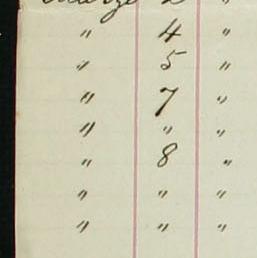 2 "
" 4 "
" 5 "
" 7 "
" " "
" 8 "
" " "
" " "